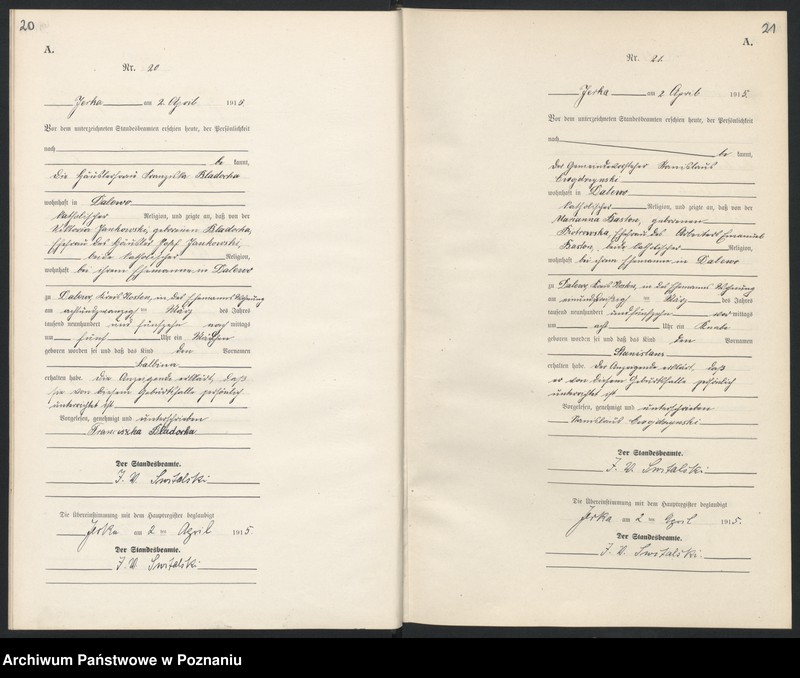 20
A.
Nr. 20
Jerka am 2. April 1915
Vor dem unterzeichneten Standesbeamten erschien heute, der Persönlichkeit
nach
be kannt,
die Häuslerfrau Franziska Bladocha
wohnhaft in Dalewo
katholischer Religion, und zeigte an, daß von der
Viktoria Jankowski, geborenen Bladocha,
Ehefrau des Häusler Josef Jankowski,
beide katholischer Religion,
wohnhaft bei ihrem Ehemanne in Dalewo
zu Dalewo, Kreis Kosten, in des Ehemanns Wohnung
am achtundzwanzig ten März des Jahres
tausend neunhundert und fünfzehn nach mittags
um fünf Uhr ein Mädchen
geboren worden sei und daß das Kind den Vornamen
Balbina
erhalten habe. Die Anzeigende erklärt, daß
sie von diesem Geburtsfalle persönlich
unterrichtet ist
Vorgelesen, genehmigt und unterschrieben
Franciszka Bladocha
Der Standesbeamte.
J. V. Switalski
Die Übereinstimmung mit dem Hauptregister beglaubigt
Jerka am 2 ten April 1915.
Der Standesbeamte.
J. V. Switalski
21
A.
Nr. 21.
Jerka am 2 April 1915.
Vor dem unterzeichneten Standesbeamten erschien heute, der Persönlichkeit
nach
be kannt,
der Gemeindevorsteher Stanislaus
wohnhaft in Dalewo
katholischer Religion, und zeigte an, daß von der
Marianna Baston, geborenen
Piotrowska, Ehefrau des Arbeiters Emanuel
Baston, beide katholischer Religion,
wohnhaft bei ihrem Ehemanne in Dalewo
zu Dalewo, Kreis Kosten, in des Ehemanns Wohnung
am einunddreißig ten März des Jahres
tausend neunhundert und fünfzehn vor mittags
um acht Uhr ein Knabe
geboren worden sei und daß das Kind den Vornamen
Stanislaus
erhalten habe. Der Anzeigende erklärt, daß
er von diesem Geburtsfalle persönlich
unterrichtet ist
Vorgelesen, genehmigt und unterschrieben
Stanislaus
Der Standesbeamte.
J. V. Switalski
Die Übereinstimmung mit dem Hauptregister beglaubigt
Jerka am 2 ten April 1915.
Der Standesbeamte.
J. V. Switalski
Archiwum Państwowe w Poznaniu